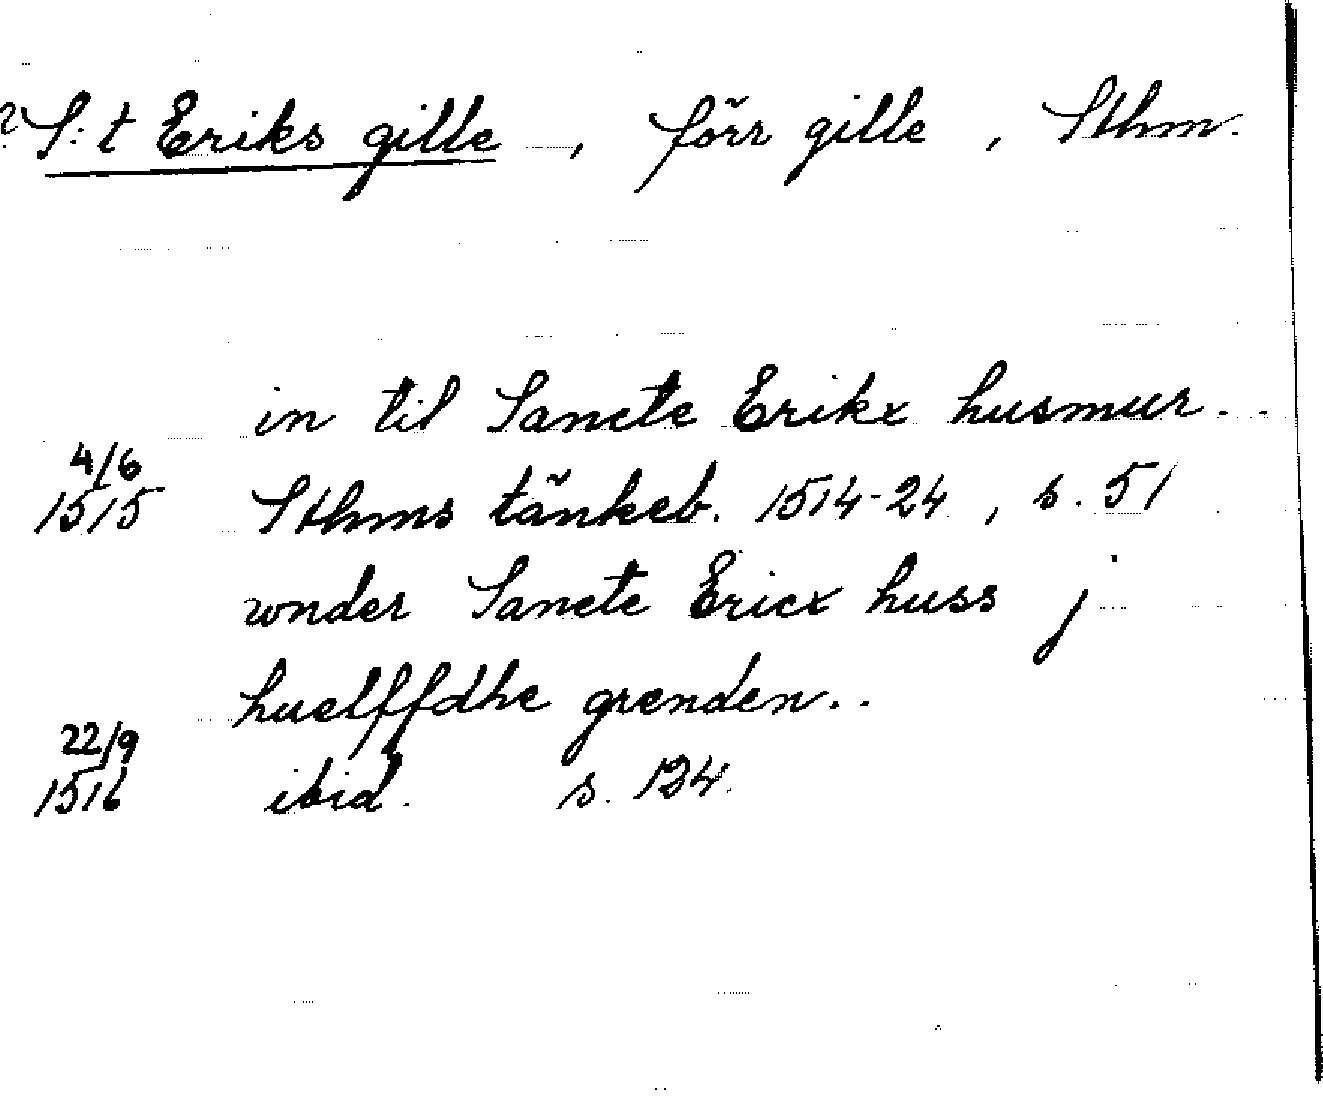 ? S:t Eriks gille, förr gille, Sthm.
in til Sancte Erikx husmur..
4/6
1515 Sthms tänkeb. 1514-24, s. 51
wnder Sancte Ericx huss j
huelffdhe grenden..
22/9
1516 ibid. s. 134.